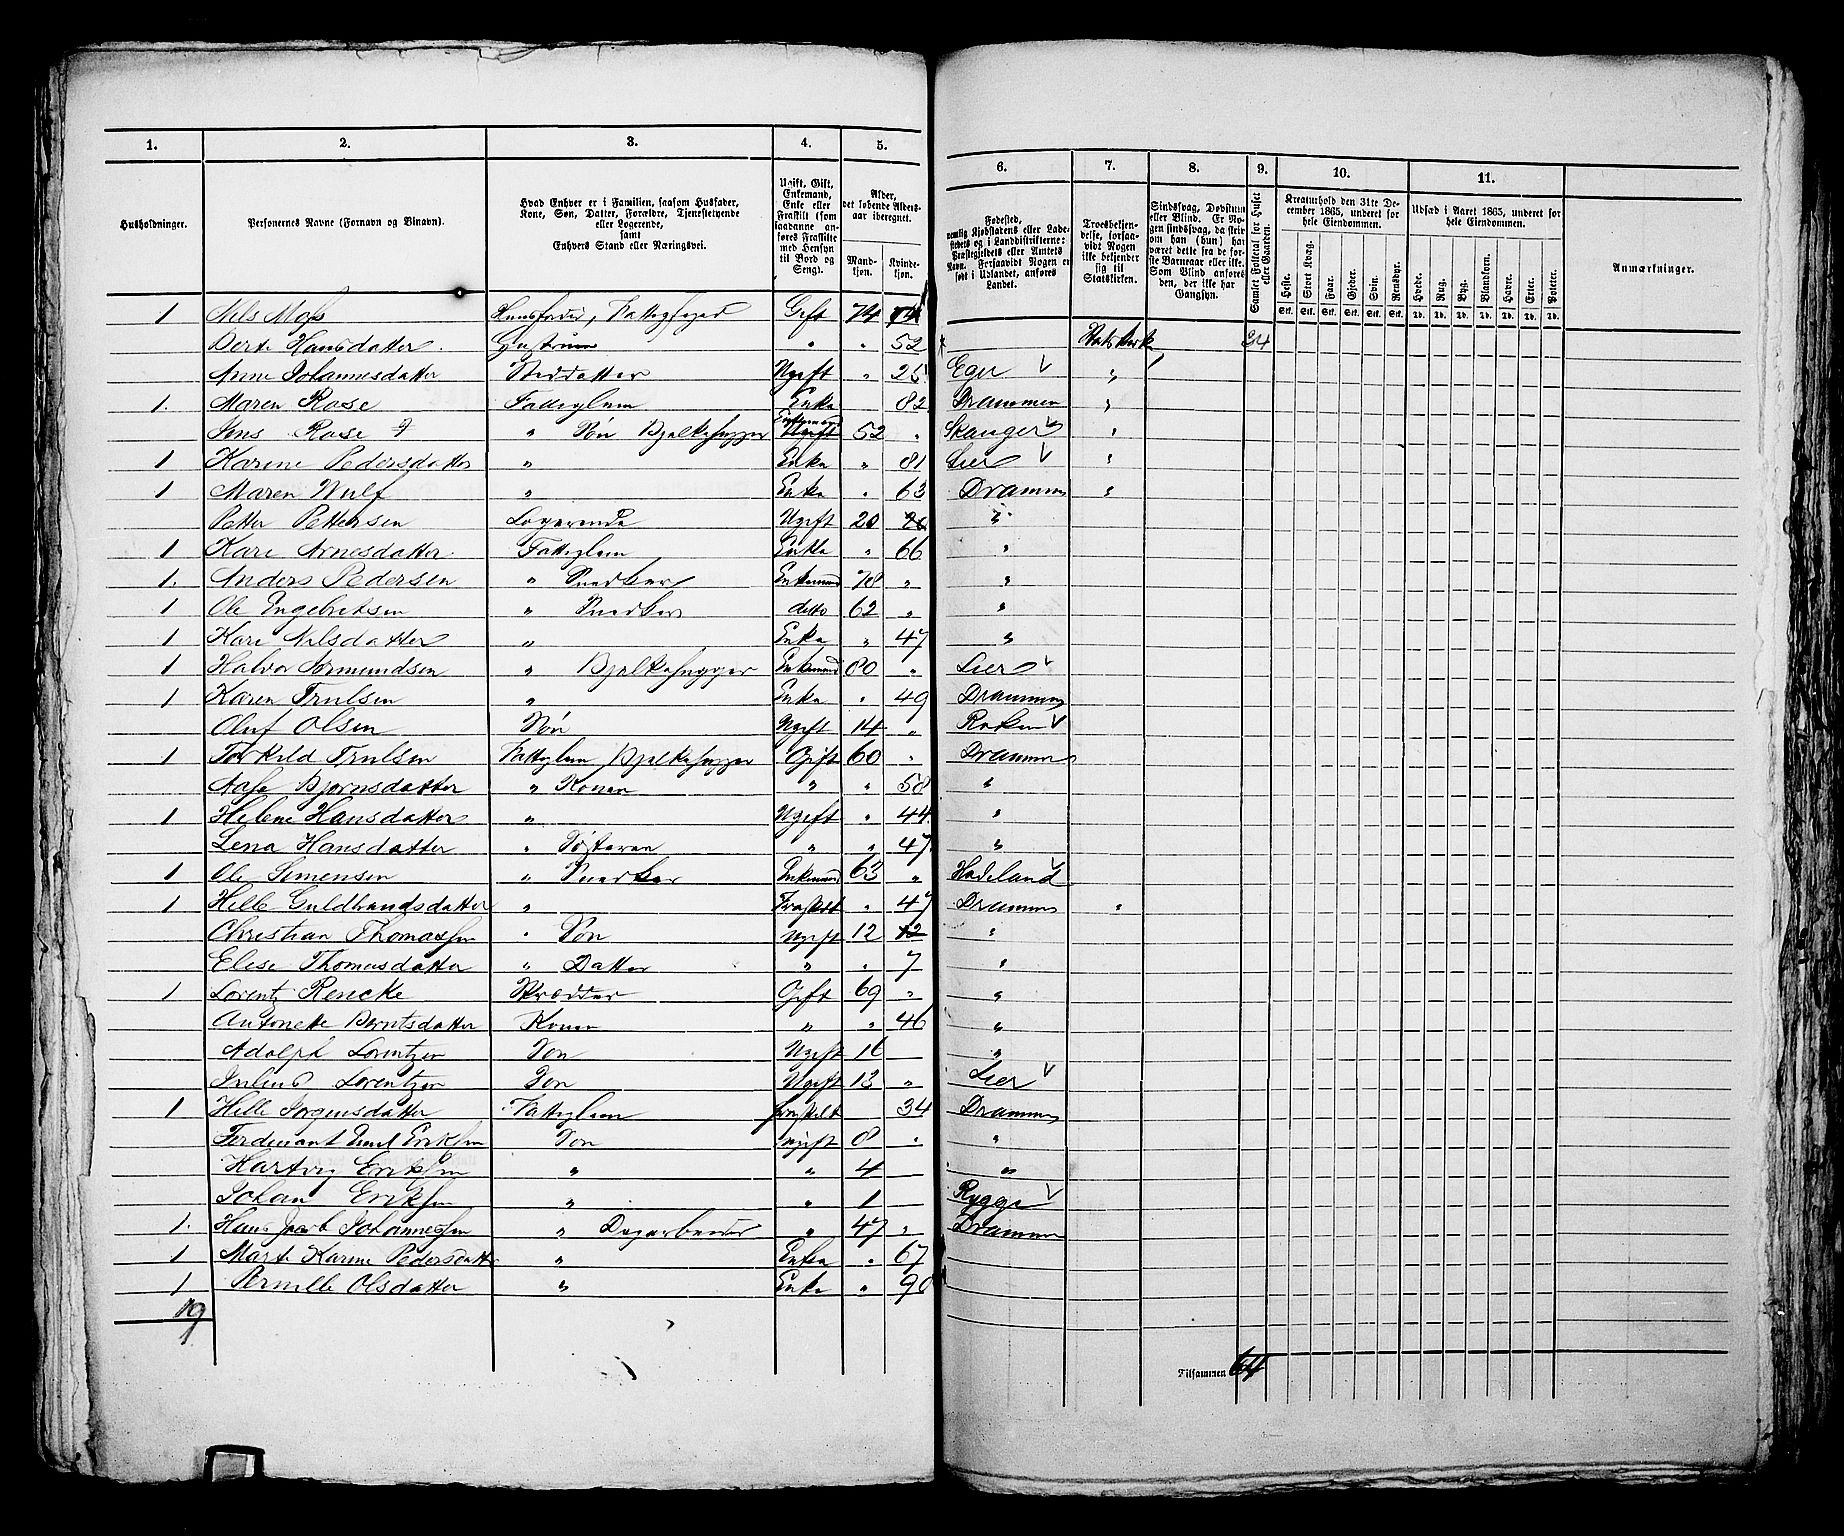 1. 2. 3. 4. 5. 6. 7. 8. 9. 10. 11.
Husholdninger.
Personernes Navne (Fornavn og Binavn).
Hvad Enhver er i Familien, saasom Husfader, Kone, Søn, Datter, Forældre, Tjenestetyende eller Logerende, samt Enhvers Stand eller Næringsvei.
Ugift, Gift, Enkemand, Enke eller Fraskilt (som saadanne anføres Fraskilte med Hensyn til Bord og Seng).
Alder, det løbende Alders-aar iberegnet.
Mand-kjøn. Kvinde-kjøn.
Fødested, nemlig Kjøbstadens eller Ladestedets og i Landdistrikterne: Præstegjeldets eller Amtets Navn. Forsaavidt Nogen er født i Udlandet, anføres Landet.
Troesbekjendelse, forsaavidt Nogen ikke bekjender sig til Statskirken.
Sindssvag, Døvstum eller Blind. Er Nogen sindssvag, da skrives om han (hun) har været dette fra de første Barneaar eller ikke. Som Blind anføres den, der ikke har Gangsyn.
Samlet Folketal for Huset eller Gaarden.
Kreaturhold den 31te December 1865, underet for hele Eiendommen.
Heste. Stort Kvæg. Faar. Gjeder. Svin. Rensdyr.
Udsæd i Aaret 1865, underet for hele Eiendommen.
Hvede. Rug. Byg. Blandkorn. Havre. Erter. Poteter.
Anmærkninger.
Stk. Stk. Stk. Stk. Stk. Stk. Td. Td. Td. Td. Td. Td. Td.
1 Nels Moss Huusfader, Gift 74
Berte Hansdatter Hustruen " " 52 Statskirke 34
Anne Johannesdatter Steddatter Ugift " 25 Eger "
1. Maren Rose Fattiglem Enke 82 Drammen "
Jens Rose " Søn Bjelkehugger Enkemand 52 " Skauger "
1 Karene Pedersdatter " Enke " 81 Lier "
1 Maren Wulf " Enke " 63 Drammen "
Petter Pettersen Logerende Ugift 20 "
1 Kari Arnesdatter Fattiglem Enke " 66 "
1. Anders Pedersen " Snedker Enkemand 78 " "
1 Ole Engebretsen " Snedker ditto 62 " "
1 Kari Nilsdatter " Enke " 47 "
1 Halvor Amundsen " Bjelkehugger Enkemand 80 " Lier
1 Karen Trulsen " Enke " 49 Drammen
Oluf Olsen Søn Ugift 14 " Røken
1 Torkild Trulsen Fattiglem Bjelkehugger Gift 60 " Drammen
Aase Bjørnsdatter " Konen " " 58 "
1 Helene Hansdatter " Ugift " 44 "
Lena Hansdatter " Søsteren " " 47 "
1 Ole Simensen " Snedker Enkemand 63 " Hadeland
1 Helle Guldbrandsdatter " Fraskilt " 47 Drammen "
Christian Thomassen " Søn Ugift 12 "
Elise Thomasdatter " Datter " " 7 "
1 Lorentz Rencke Skrædder Gift 69 " "
Antonette Berntsdatter Konen " " 46 "
Adolph Lorentzen Søn Ugift 16 "
Julius Lorentzen Søn Ugift 13 " Lier
1 Helle Jørgensdatter Fattiglem fraskilt 34 Drammen
Ferdinant Emil Eriksen Søn ugift 8 " "
Hartvig Eriksen " " 4 "
Johan Eriksen " " 1 Rygge
1. Hans Jacob Johannessen " Dagarbeider " 47 " Drammen
1 Marte Karine Pedersdatter " Enke " 67
1 Pernille Olsdatter " Enke " 90
19
Tilsammen 64